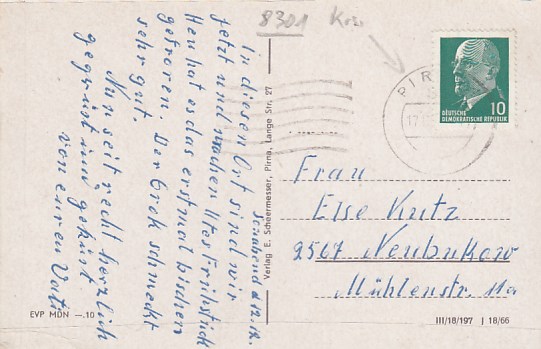 8301
Sonnabend d. 12. 12.
In diesen Ort sind wir
jetzt und machen 1tes Frühstück
Heu hat es das erstmal bischen
gefroren. Der Grok schmeckt
sehr gut.
Nun seit recht herzlich
gegrüst und geküst
von euren Vati
Verlag E. Scheermesser, Pirna, Lange Str. 27
PIR
10
DEUTSCHE
DEMOKRATISCHE REPUBLIK
Frau
Else Kutz
2567 Neubukow
Mühlenstr. 11a
EVP MDN —.10
III/18/197 J 18/66